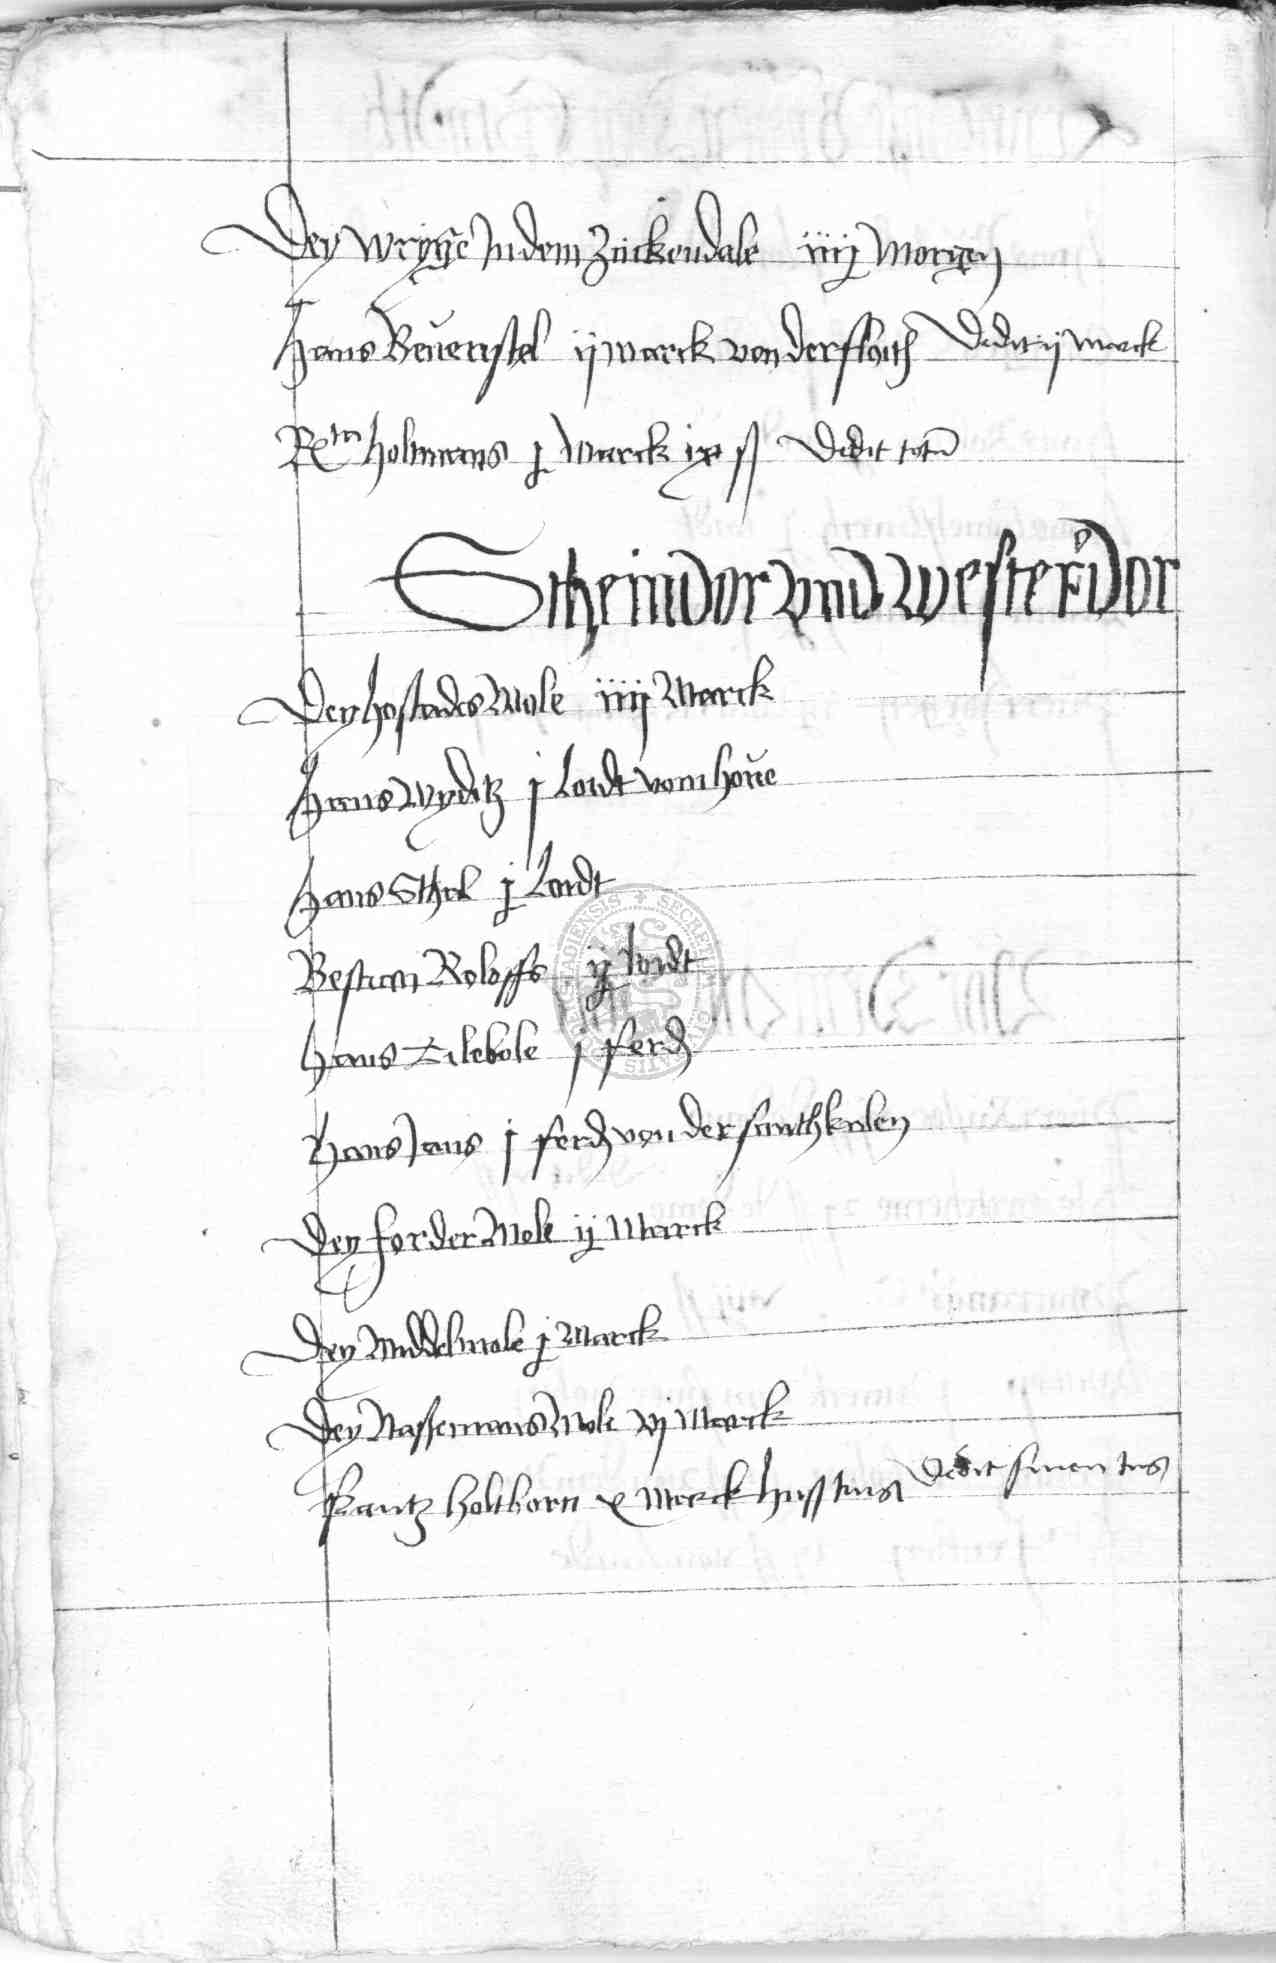 Dey wryge Indem Zuckendale iiij Morgen
Hans Beuerystel ij marck von der floith Dedit ij marck
R tm holtmans j Marck ix ß Dedit totũ
Stheindor vnd Westerdor
Dey hostades Mole iiij Marck
Hans Wyditz j Lordt vom houe
Hans Sthel j Lordt
Bestian Roloffs ij Lordt
Hans Tilebole j ferd
Hans Jans j ferd von der santhkulen
Dey forder Mole ij Marck
Dey Middelmole j Marck
Dey Nassemans Mole vj Marck
Frantz holthorn x Marck huss tins Dedit sinen tins
SECRETUM CIVITATIS